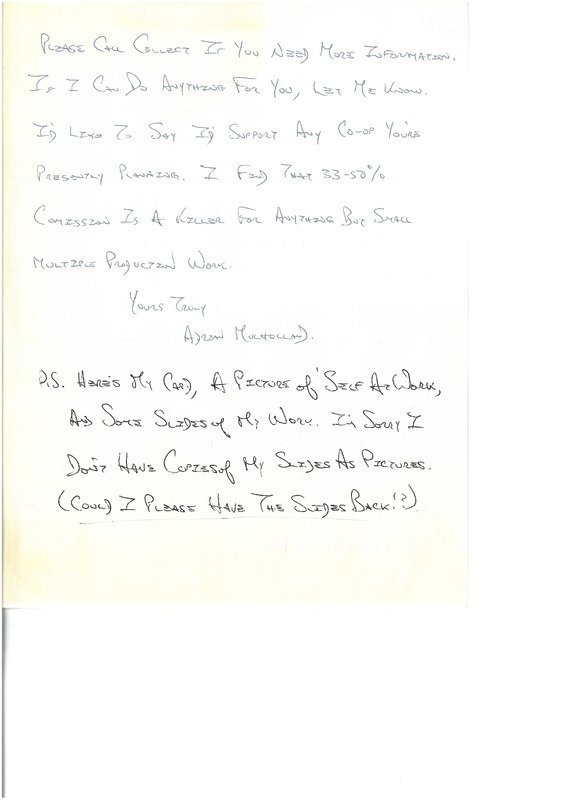 Please Call Collect If You Need More Information.
If I Can Do Anything For You, Let Me Know.
I'd Like To Say I'd Support Any Co-op You're
Presently Planning. I Find That 33-50%
Comission Is A Killer For Anything But Small
Multiple Production Work.
Yours Truly
Adrian Mulholland.
P.S. Here's My Card, A Picture of 'Self At Work,
And Some Slides of My Work. I'm Sorry I
Don't Have Copies of My Slides As Pictures.
(Could I Please Have The Slides Back!?)